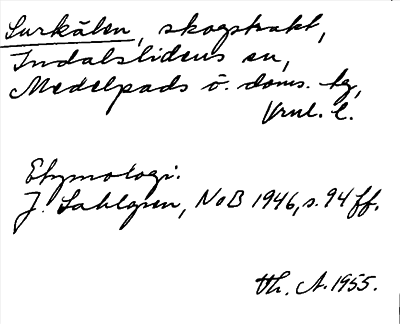 Surkålen, skogstrakt,
Indalslidens sn,
Medelpads ö. doms. tg,
Vrnl. l.
Etymologi.
J. Sahlgren, NoB 1946, s. 94 ff.
Th. A. 1955.